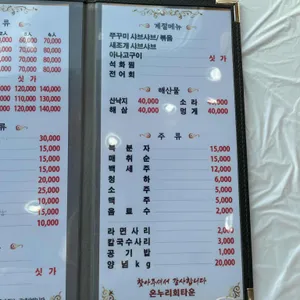 류
60,000 70,000
60,000 70,000
70,000 80,000
120,000 140,000
120,000 140,000
류
30,000
15,000
15,000
20,000
25,000
15,000
10,000
싯 가
계절메뉴
쭈꾸미 샤브샤브/ 볶음
새조개 샤브샤브
아나고구이 싯 가
석화찜
전어회
해산물
산낙지 40,000 소라
해삼 40,000 멍게 40,000
주 류
복분자 15,000
매취순 15,000
백세주 12,000
청하 6,000
소주 5,000
맥주 5,000
음료수 2,000
라면사리 2,000
칼국수사리 3,000
공기밥 1,000
양념kg 20,000
찾아주셔서 감사합니다
온누리회타운